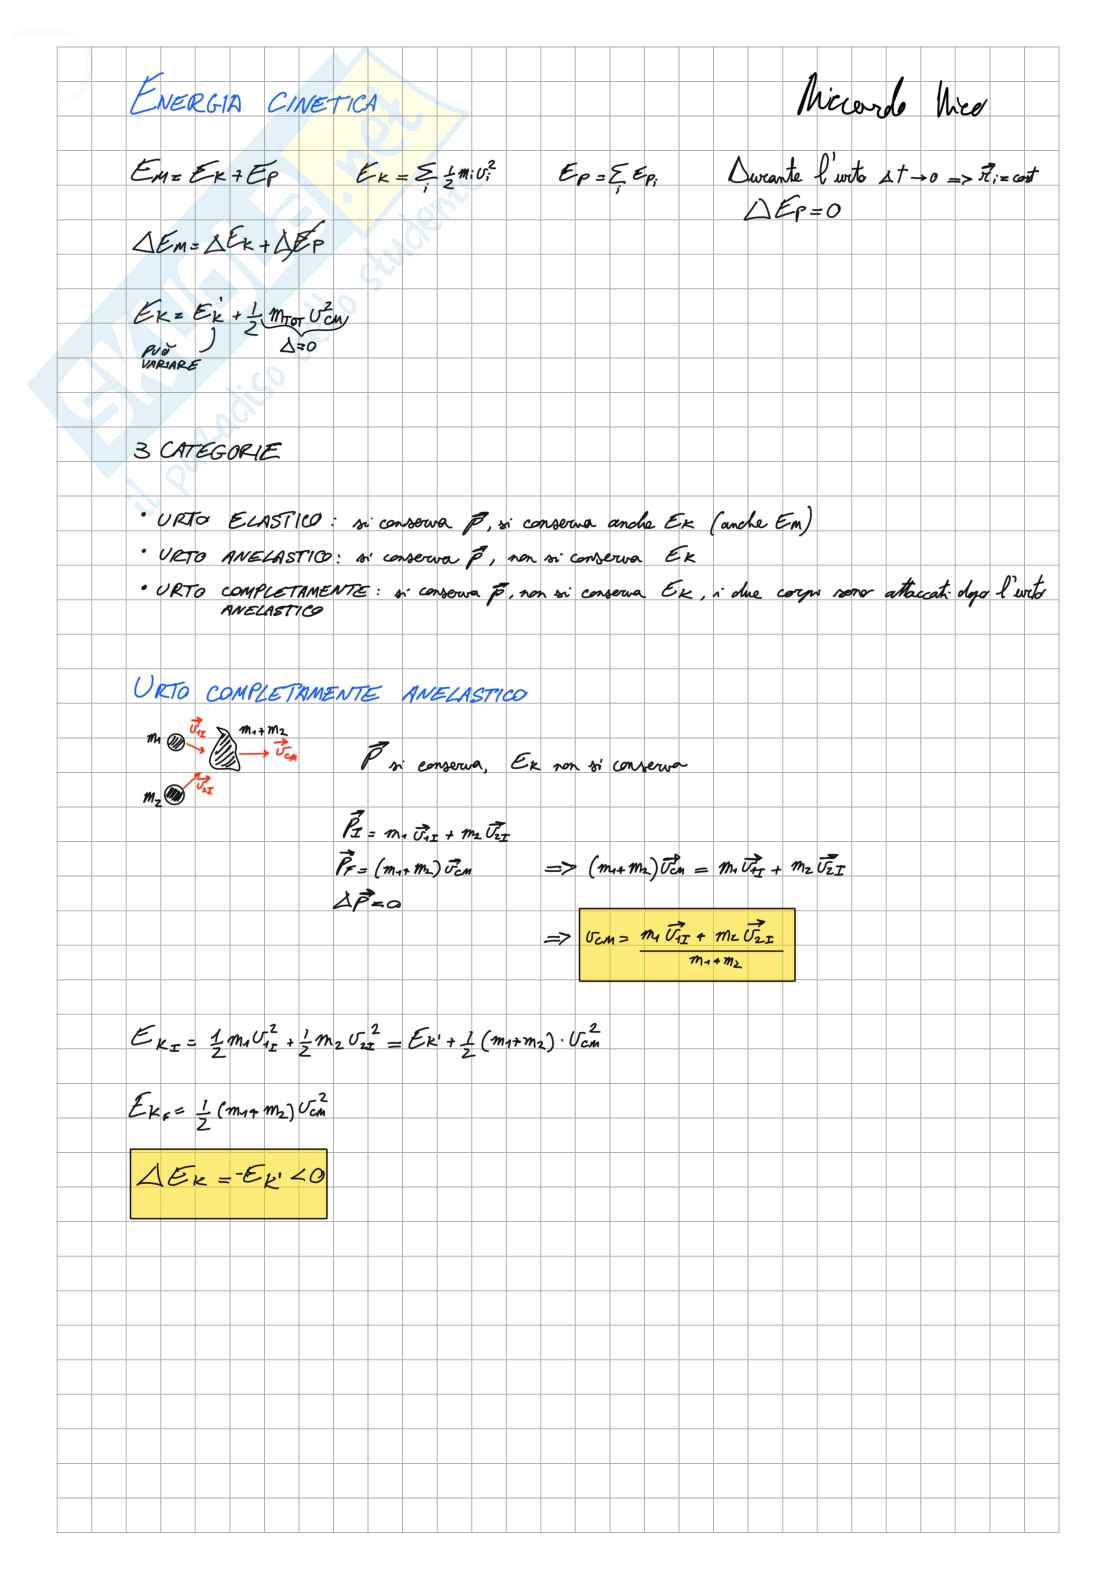 ENERGIA CINETICA
Riccardo Nico
EM = EK + EP    EK = Σi ½ mi vi²    EP = Σi EPi    Durante l'urto Δt → 0 => r⃗i = cost
ΔEP = 0
ΔEM = ΔEK + ΔEP
EK = EK' + ½ mTOT vCM²
PUÒ VARIARE    Δ=0
3 CATEGORIE
• URTO ELASTICO: si conserva P⃗, si conserva anche EK (anche EM)
• URTO ANELASTICO: si conserva P⃗, non si conserva EK
• URTO COMPLETAMENTE: si conserva P⃗, non si conserva EK, i due corpi sono attaccati dopo l'urto
ANELASTICO
URTO COMPLETAMENTE ANELASTICO
m1 v⃗1I m1+m2 v⃗CM
m2 v⃗2I
P⃗ si conserva, EK non si conserva
P⃗I = m1 v⃗1I + m2 v⃗2I
P⃗F = (m1+m2) v⃗CM    => (m1+m2) v⃗CM = m1 v⃗1I + m2 v⃗2I
ΔP⃗ = 0
=> vCM = (m1 v⃗1I + m2 v⃗2I) / (m1+m2)
EKI = ½ m1 v1I² + ½ m2 v2I² = EK' + ½ (m1+m2) · vCM²
EKF = ½ (m1+m2) vCM²
ΔEK = -EK' < 0
SKUOLA.net
il paradiso dello studente